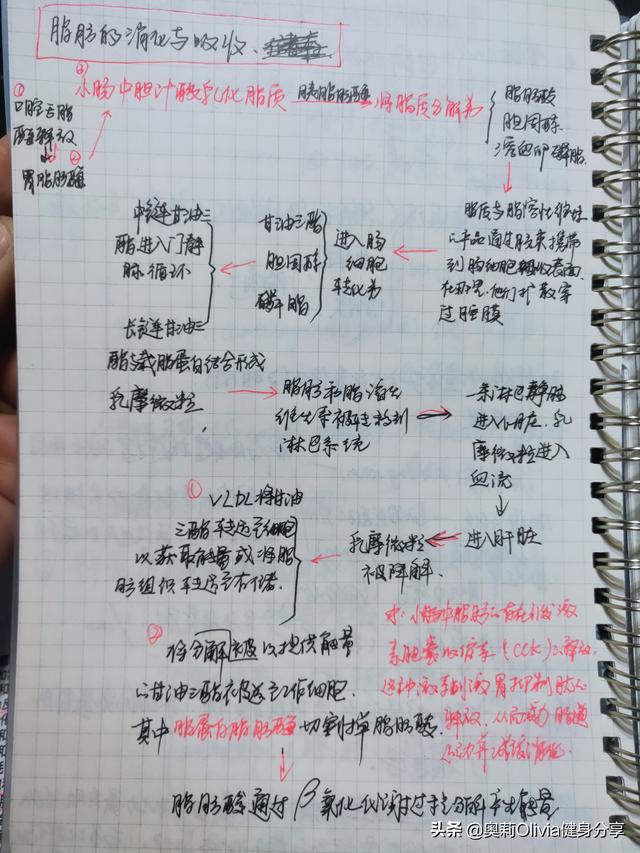 脂肪的消化与吸收
①
口腔舌脂
酶释放
②
胃脂肪酶
③
小肠中胆汁酸乳化脂质 胰脂肪酶 将脂质分解为
脂肪酸
胆固醇
溶血卵磷脂
脂质与脂溶性维生
产品通过胶束携带
到肠细胞
他们扩散穿
过膜
进入肠
细胞
转化为
甘油三酯
胆固醇
磷脂
中链甘油三
脂进入门静
脉循环
长链甘油三
脂与载脂蛋白结合形成
乳糜微粒
脂肪和脂溶性
维生素被转移到
淋巴系统
淋巴静脉
进入心脏,乳
糜微粒进入
血流
进入肝脏
乳糜微粒
被降解.
①
VLDL将甘油
三酯转运至细胞
以获取能量或将脂
肪组织转运至存储.
②
将分解以提供能量
的甘油三酯被送至工作细胞.
其中脂蛋白脂肪酶切割掉脂肪酸
脂肪酸通过β氧化代谢过程分解产生能量
小肠中脂肪的存在刺激
素胆囊收缩素(CCK)的释放,
这种激素刺激胃抑制肽的
释放,从而减少肠道
运动并减缓消化
头条@奥莉Olivia健身分享